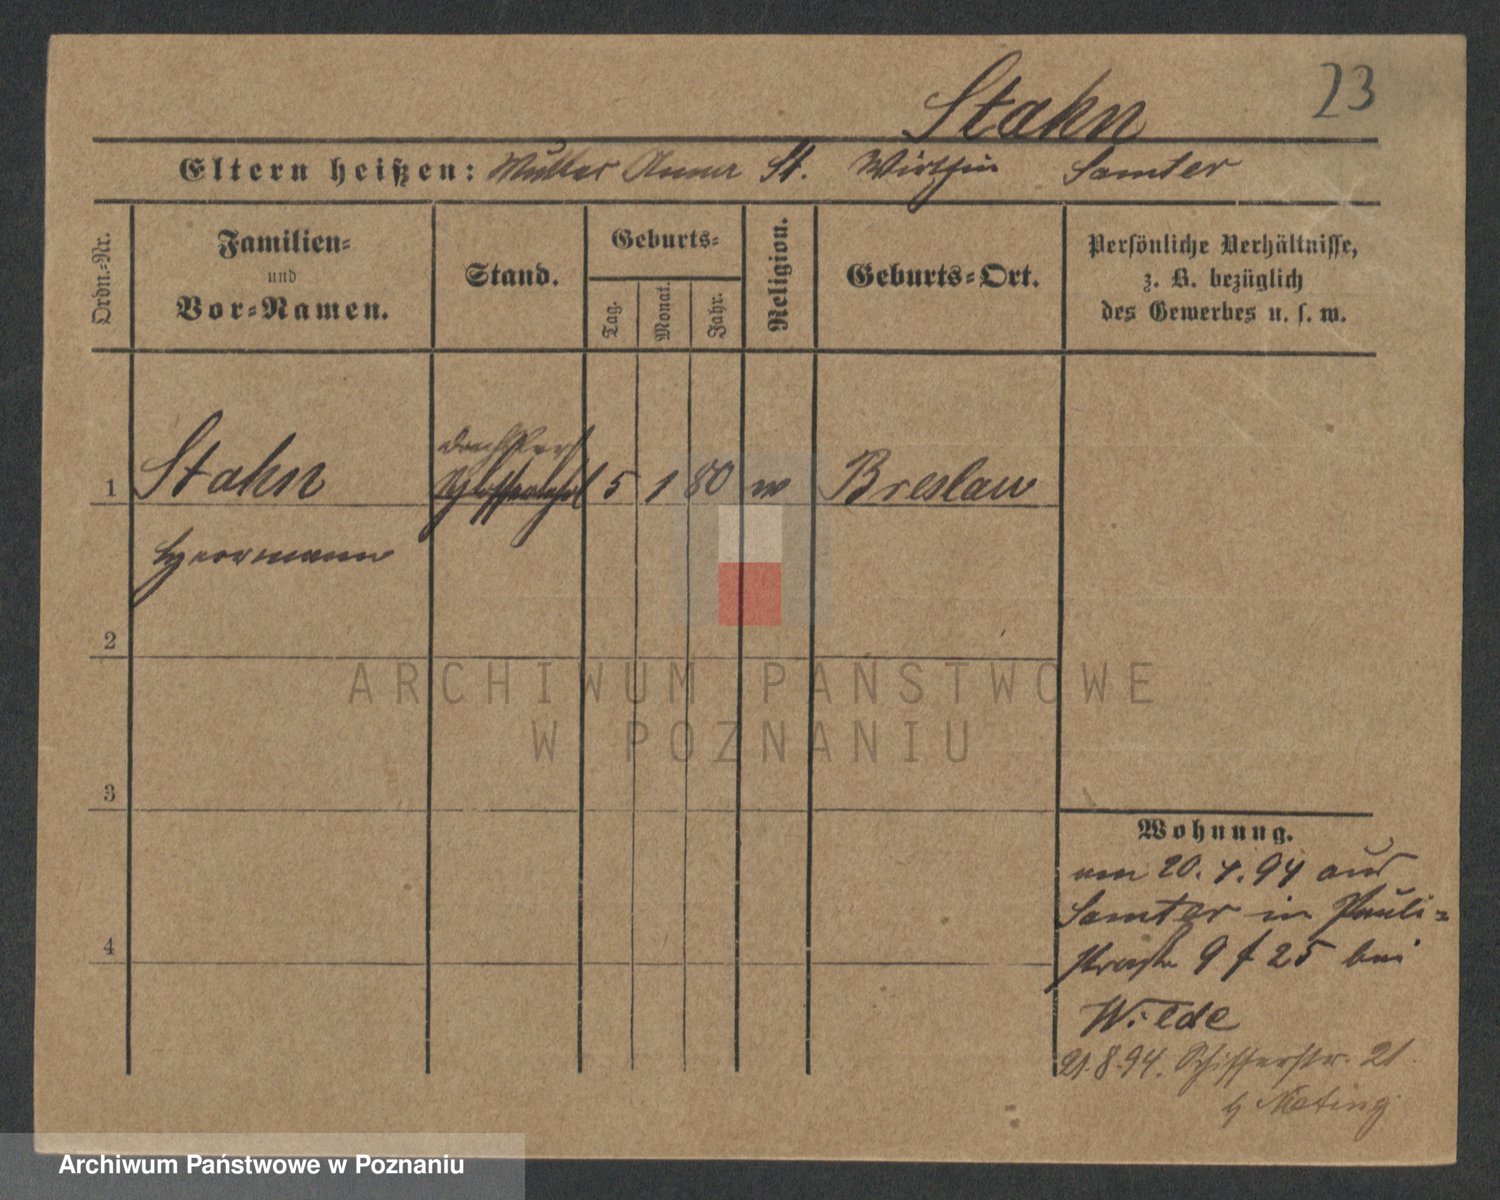 23
Stahn
Eltern heißen: Mutter Anna St. Wirthin Samter
Ordn.-Nr.
Familien-
und
Vor-Namen.
Stand.
Geburts-
Tag.
Monat.
Jahr.
Religion.
Geburts-Ort.
Persönliche Verhältnisse,
z. B. bezüglich
des Gewerbes u. s. w.
1 Stahn 5 1 80 Breslau
Herrmann
2
3
4
ARCHIWUM PAŃSTWOWE
W POZNANIU
Wohnung.
am 20. 4. 94 aus
Samter in Pauli-
straße 9 f 25 bei
Wilde
21. 8. 94. Schifferstr. 21
Archiwum Państwowe w Poznaniu